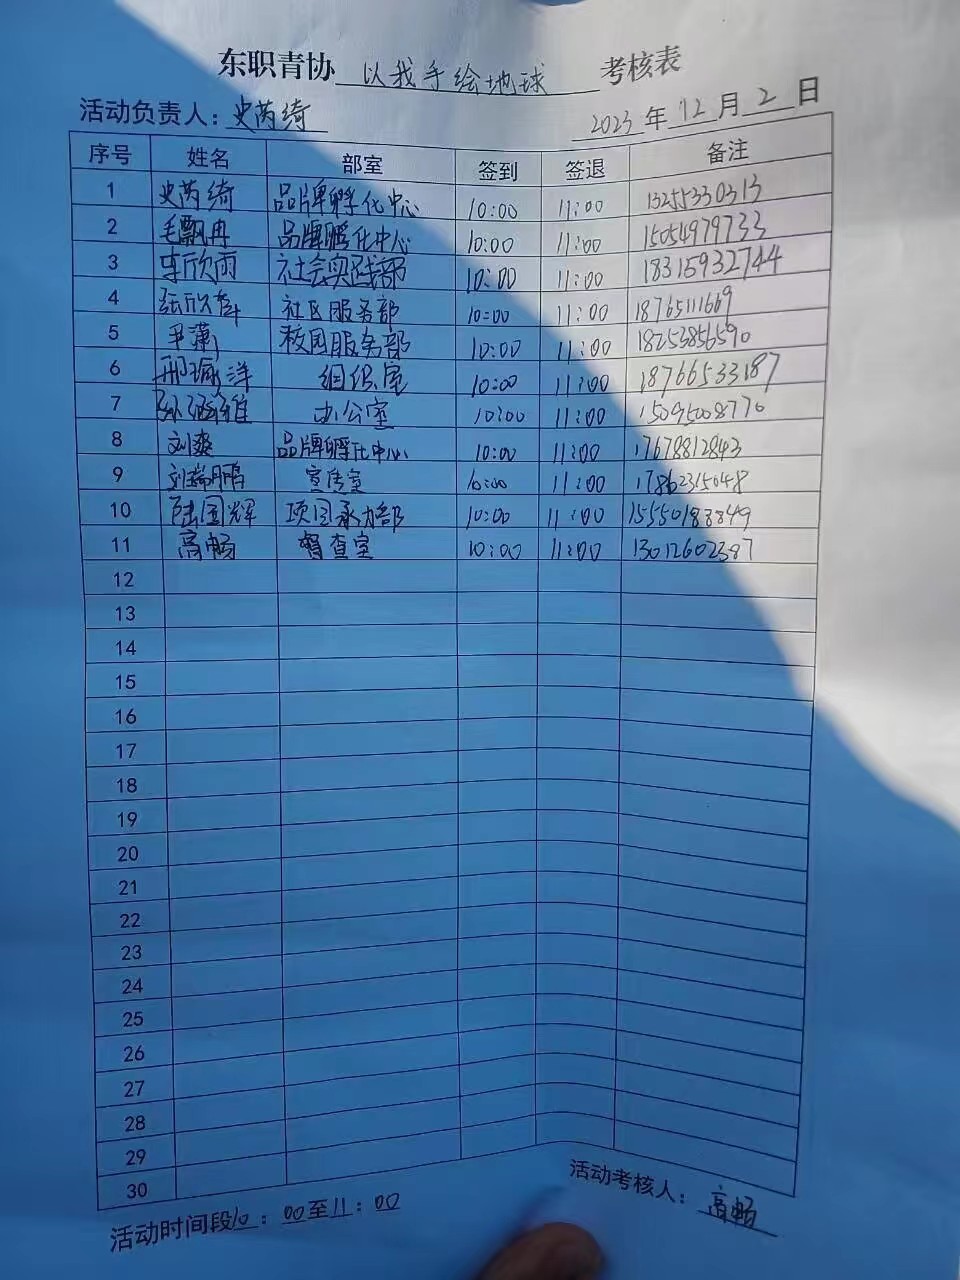 东职青协 以我手绘地球 考核表
活动负责人：史芮绮 2023 年 12 月 2 日
序号 姓名 部室 签到 签退 备注
1 史芮绮 品牌孵化中心 10:00 11:00 13255330313
2 毛飘冉 品牌孵化中心 10:00 11:00 15054979733
3 李欣雨 社会实践部 10:00 11:00 18315932744
4 社区服务部 10:00 11:00 18765111669
5 尹潇 校园服务部 10:00 11:00 18253856590
6 邢瑜洋 组织室 10:00 11:00 18766533187
7 办公室 10:00 11:00 15095008770
8 刘爽 品牌孵化中心 10:00 11:00 17678812843
9 刘瑞鹏 宣传室 10:00 11:00 17862315048
10 陆国辉 项目承办部 10:00 11:00 15550188849
11 高畅 督查室 10:00 11:00 13012602387
12
13
14
15
16
17
18
19
20
21
22
23
24
25
26
27
28
29
30
活动时间段10：00至11：00 活动考核人：高畅